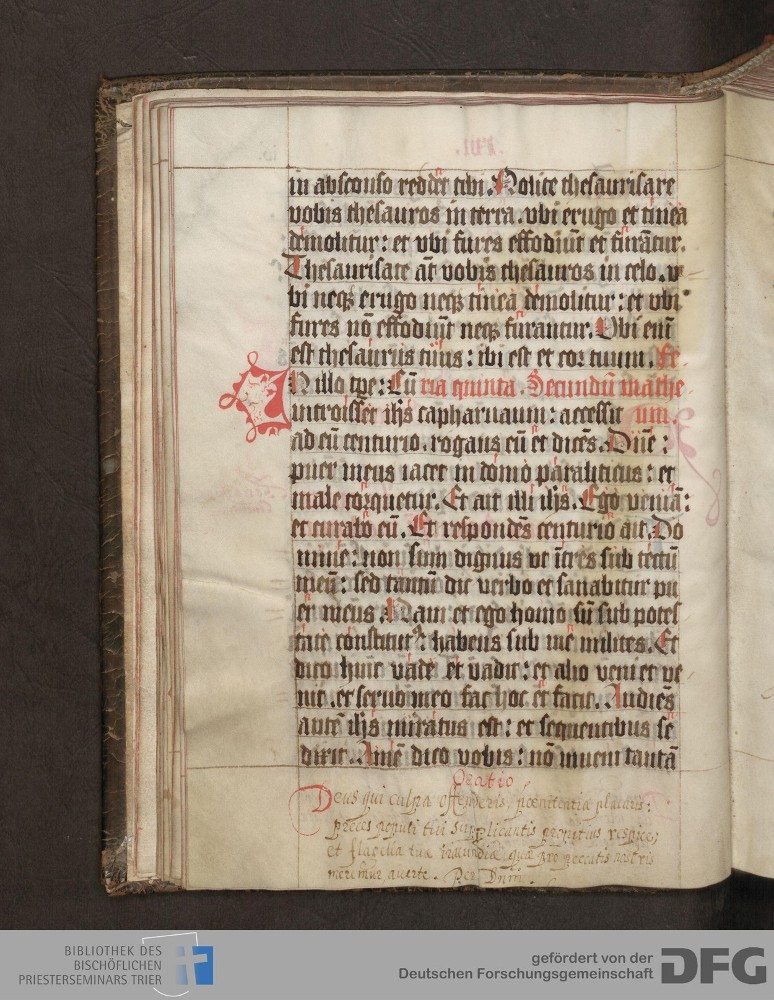 in absconso reddet tibi. Nolite thesaurisare
vobis thesauros in terra. vbi erugo et tinea
demolitur: et vbi fures effodiūt et furātur.
Thesaurisate āt vobis thesauros in celo. v
bi neqꝫ erugo neqꝫ tinea demolitur: et vbi
fures nō effodiūt neqꝫ furantur. Vbi enī
est thesaurus tuus: ibi est et cor tuum. Fe
IN illo tꝑe: Cū ria quinta. Secundū mathe
introisset ihs capharnaum: accessit um.
ad eū centurio. rogans eū et dicēs. Dn̄e:
puer meus iacet in domo paraliticus: et
male torquetur. Et ait illi ihs. Ego veniā:
et curabo eū. Et respondēs centurio ait. Do
mine: non sum dignus vt ītres sub tectū
meū: sed tantū dic verbo et sanabitur pu
er meus. Nam et ego homo sū sub potes
tate constitutꝰ: habens sub me milites. Et
dico huic vade et vadit: et alio veni et ve
nit. et seruo meo fac hoc et facit. Audiēs
autē ihs miratus est: et sequentibus se
dixit. Amē dico vobis: nō inueni tantā
Oratio
Deus qui culpa offenderis, poenitentia placaris:
preces populi tui supplicantis propitius respice,
et flagella tuæ iracundiæ quæ pro peccatis nostris
meremur, auerte. Per Dn̄m.
BIBLIOTHEK DES
BISCHÖFLICHEN
PRIESTERSEMINARS TRIER
gefördert von der
Deutschen Forschungsgemeinschaft
DFG